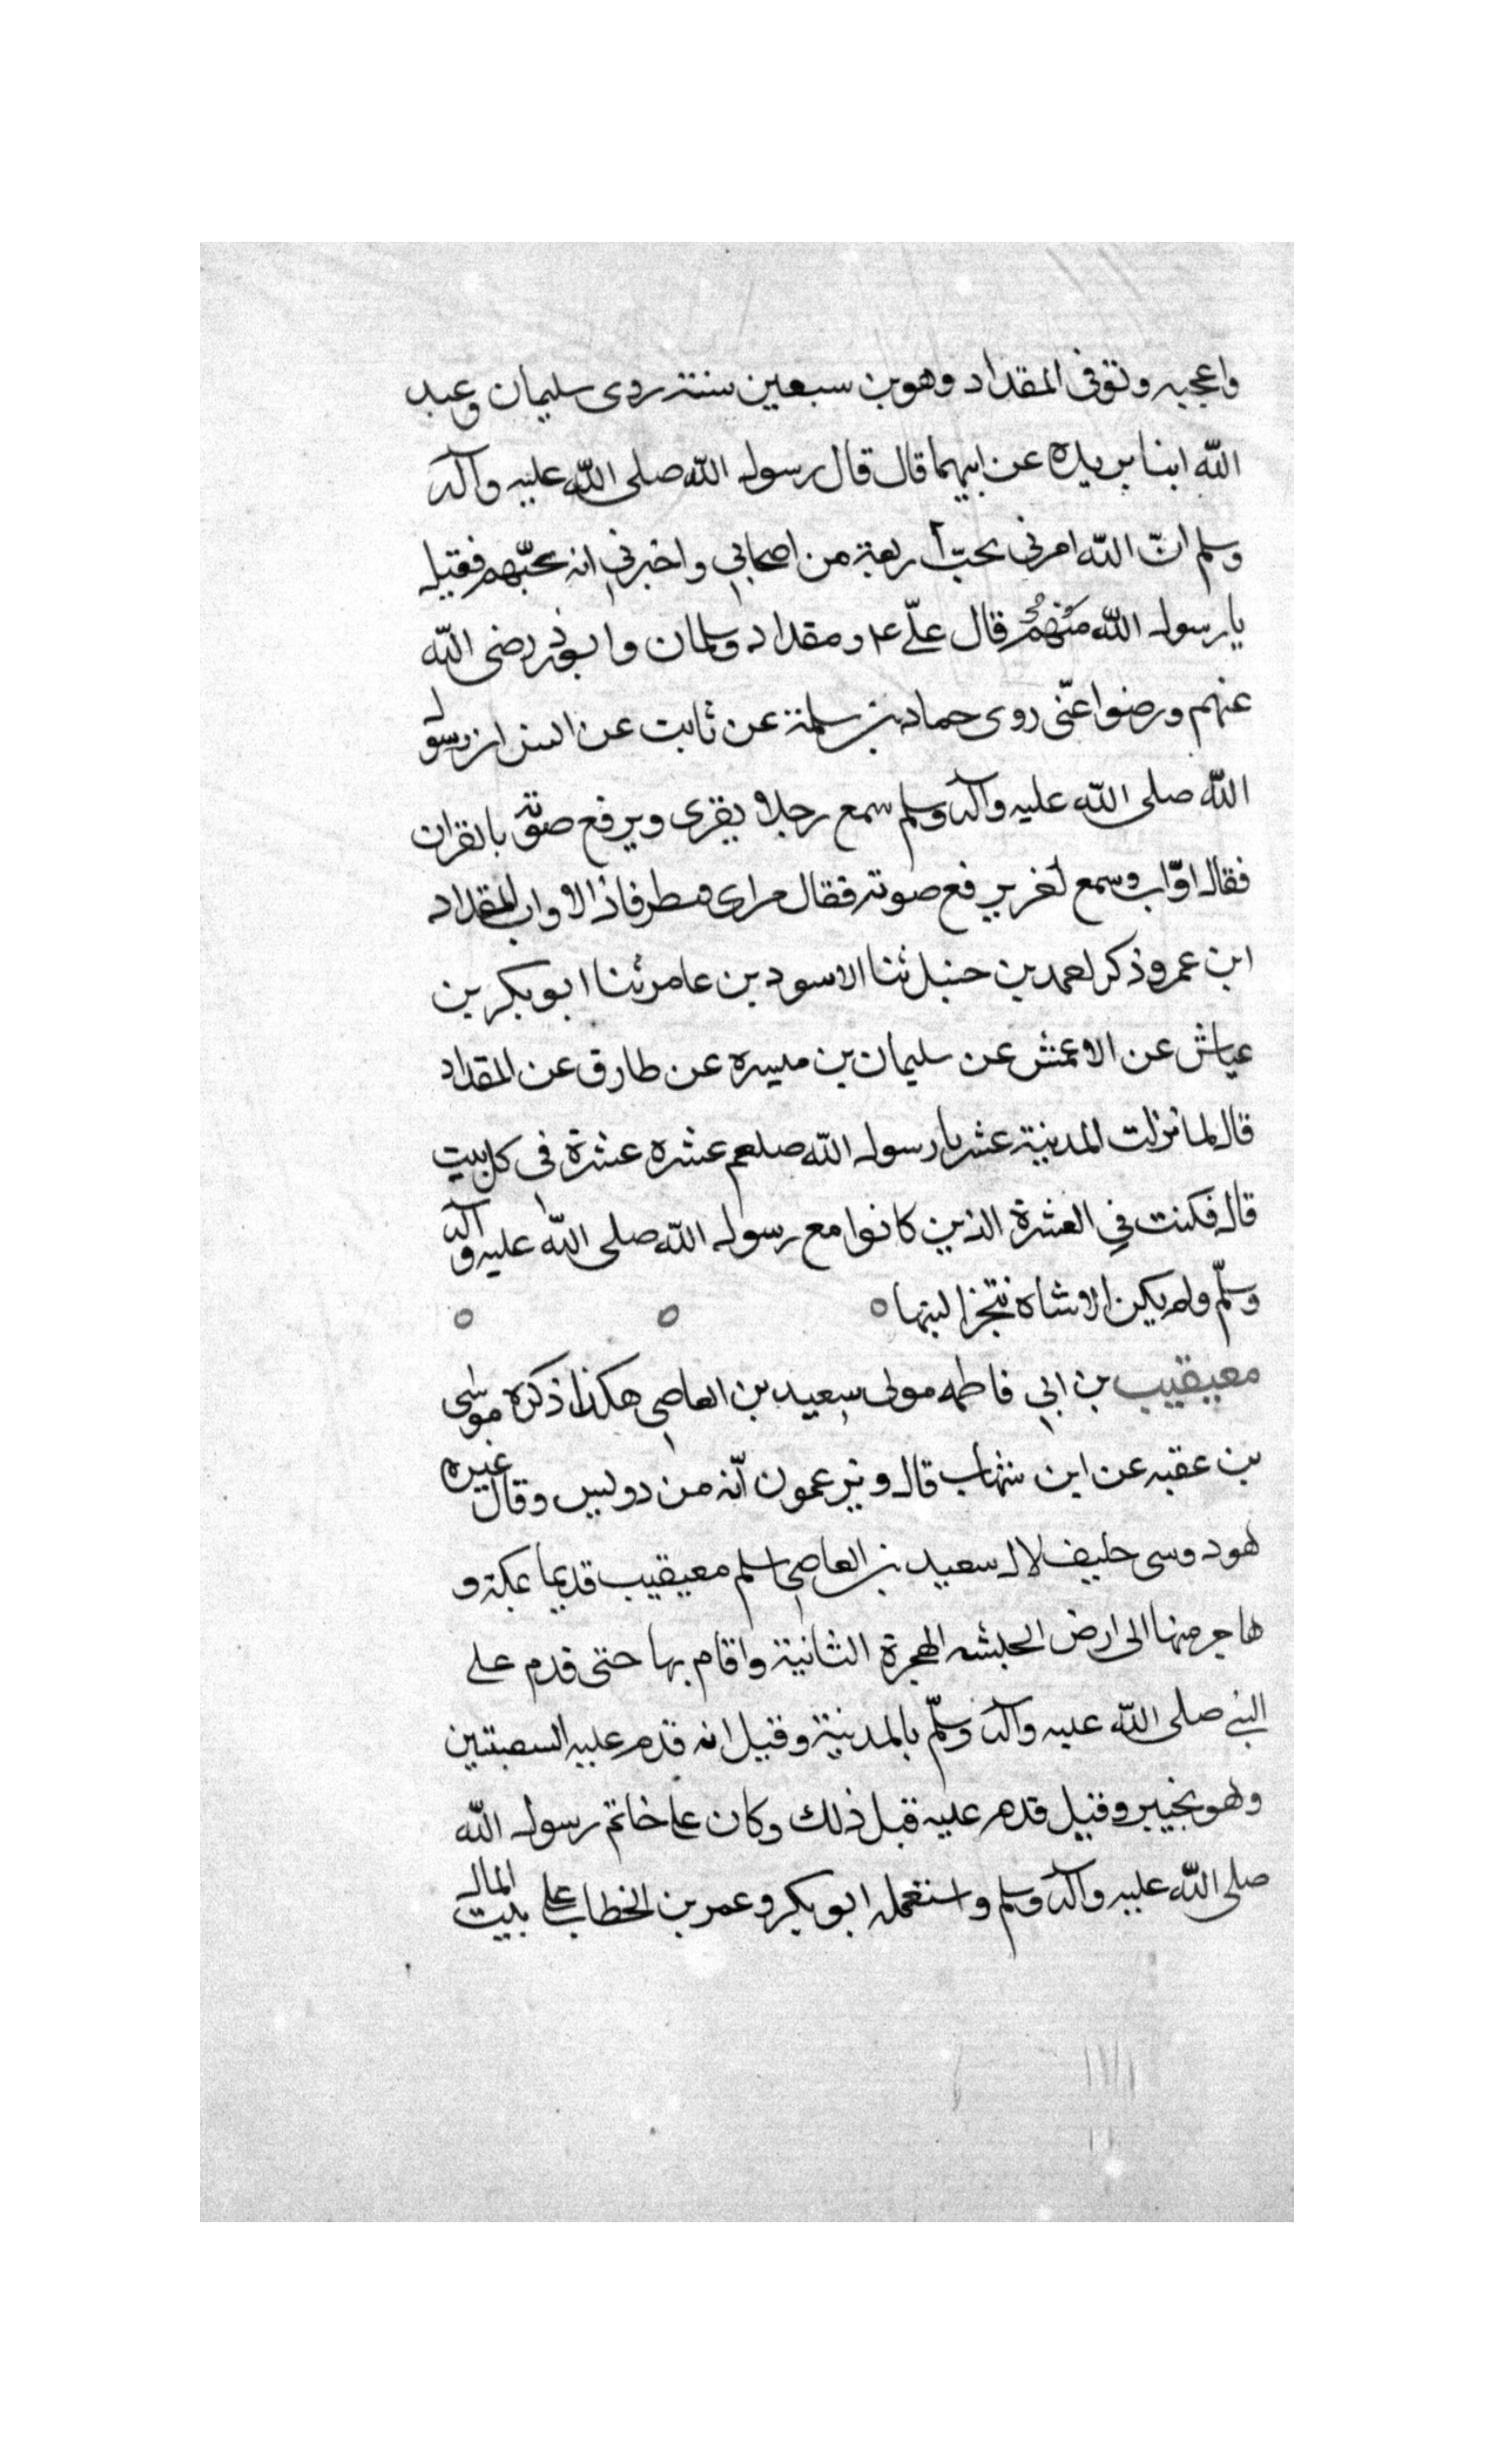 واعجبه وتوفى المقداد وهو بن سبعين سنته روى سليمان وعبد
الله ابنا بريده عن ابيهما قال قال رسول الله صلى الله عليه وآله
وسلم انّ الله امرنى بحبّ أربعة من اصحابي واخبرني انه يحبّهم فقيل
يا رسول الله منهم قال علىّ ع م ومقداد وسلمان وابوذر رضى الله
عنهم ورضوا عنّى روى حماد بن سلمة عن ثابت عن انس ان رسول
الله صلى الله عليه وآله وسلم سمع رجلا يقرى ويرفع صوته بالقران
فقال اوّاب وسمع لغر يرفع صوته فقال مراى فاذا الاواب المقداد
ابن عمرو ذكر احمد بن حنبل ثنا الاسود بن عامر ثنا ابو بكر بن
عياش عن الاعمش عن سليمان بن ميسره عن طارق عن المقداد
قال لما نزلت المدينة عشرنا رسول الله صلعم عشره عشرة فى كل بيت
قال فكنت في العشرة الذين كانوا مع رسول الله صلى الله عليه وآله
وسلّم ولم يكن الا شاة نتجزا لبنها
معيقيب بن ابي فاطمه مولى سعيد بن العاصي هكذا ذكره موسى
بن عقبه عن ابن شهاب قال ويزعمون انّه من دوس وقال غيره
هو دوسى حليف لال سعيد بن العاصي اسلم معيقيب قديما بمكة و
هاجر منها الى ارض الحبشه الهجرة الثانية واقام بها حتى قدم على
النبي صلى الله عليه وآله وسلّم بالمدينة وقيل انه قدم عليه السفينتين
وهو بخيبر وقيل قدم عليه قبل ذلك وكان على خاتم رسول الله
صلى الله عليه وآله وسلم واستعمله ابو بكر وعمر بن الخطاب على بيت المال